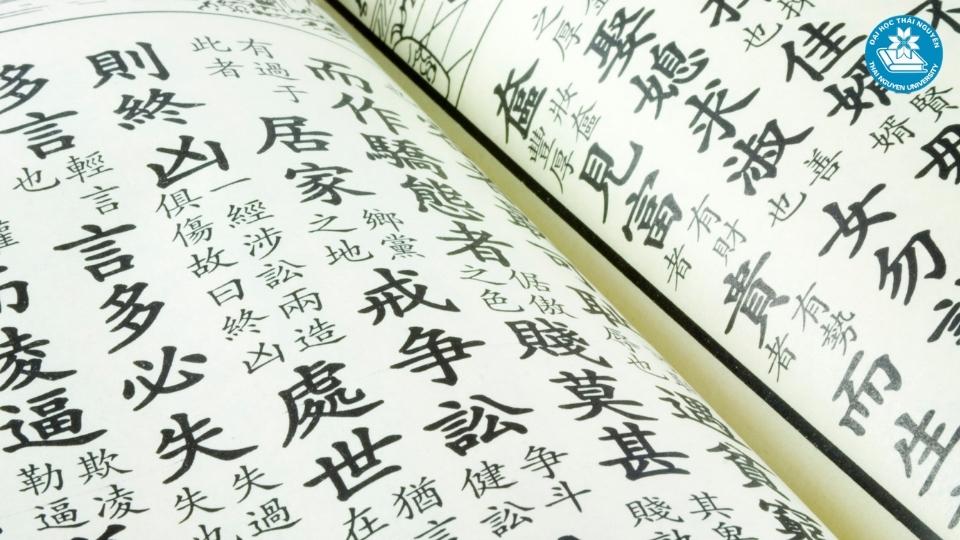 佳婿賢婿毋
娶媳求淑善也女勿
奩妝奩豐厚見富有財者貴有勢者而生
遇貧窮
而作驕態者倨傲之色賤莫甚其卑賤
有過于此者居家鄉黨之地戒争訟争斗健訟
則終凶一經涉訟兩造俱傷故曰終凶處世猶言在
多言輕言也言多必失失過失也
而凌逼欺凌勒逼
ĐẠI HỌC THÁI NGUYÊN
THAI NGUYEN UNIVERSITY